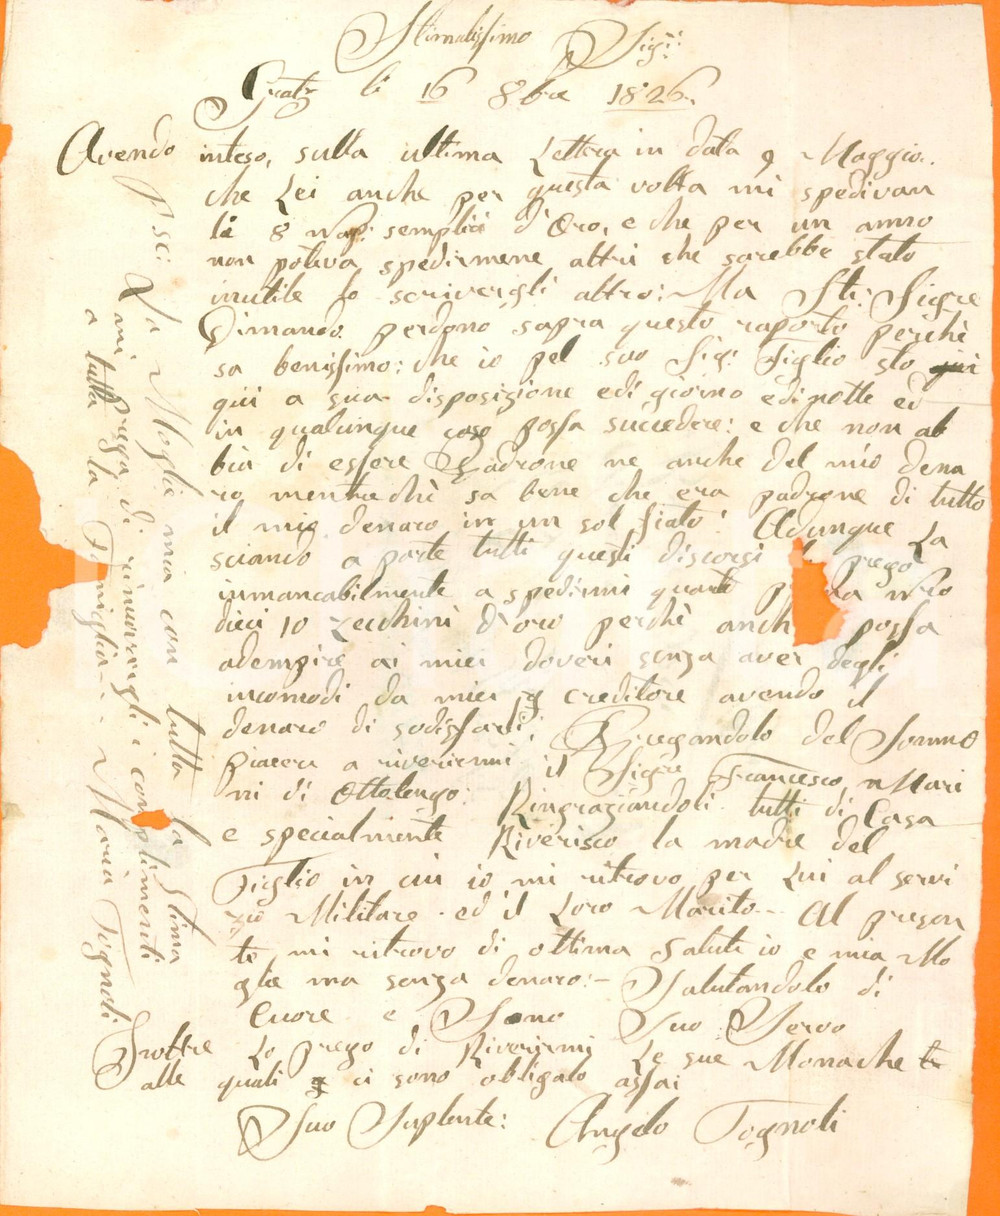 Stimatissimo Sig:re
Gratz li 16 8bre 1826.
Avendo inteso, sulla ultima Lettera in data 9 Maggio.
che Lei anche per questa volta mi spedivan
li 8 Nap: semplici d'Oro, e che per un anno
non poteva spedirmene altri che sarebbe stato
inutile lo scrivergli altro: Ma Sti: Sigre
Dimando perdono sopra questo raporto perchè
sa benissimo: che io pel suo Sig: Figlio sto
qui a sua disposizione e di giorno e di notte ed
in qualunque caso possa succedere: e che non ab
bia di essere Padrone ne anche del mio dena
ro mentrechè sa bene che era padrone di tutto
il mio denaro in un sol fiato! Adunque La
sciando a parte tutti questi discorsi prego
immancabilmente a spedirmi quanto
dieci 10 zecchini d'oro perchè anch possa
adempire ai miei doveri senza aver degli
incomodi da miei creditore avendo il
denaro di sodisfarli; Pregandolo del Sommo
piacere a riverirmi il Sigre Francesco Mari
ni di Ottolengo: Ringraziandoli tutti di Casa
e specialmente Riverisco la madre del
Figlio in cui io mi ritrovo per Lui al servi
zio Militare. ed il Loro Marito. Al presen
te mi ritrovo di ottima Salute io e mia Mo
glie ma senza denaro:- Salutandolo di
Cuore e Sono Suo Servo
Inoltre Lo prego di Riverirmi Le sue Monache
alle quali ci sono obligato assai
Suo Suplente: Angelo Tognoli
P: Sc: La Moglie mia con tutta la Stima
mi Prega di rinovergli i complimenti
a tutta la Famiglia - Maria Tognoli